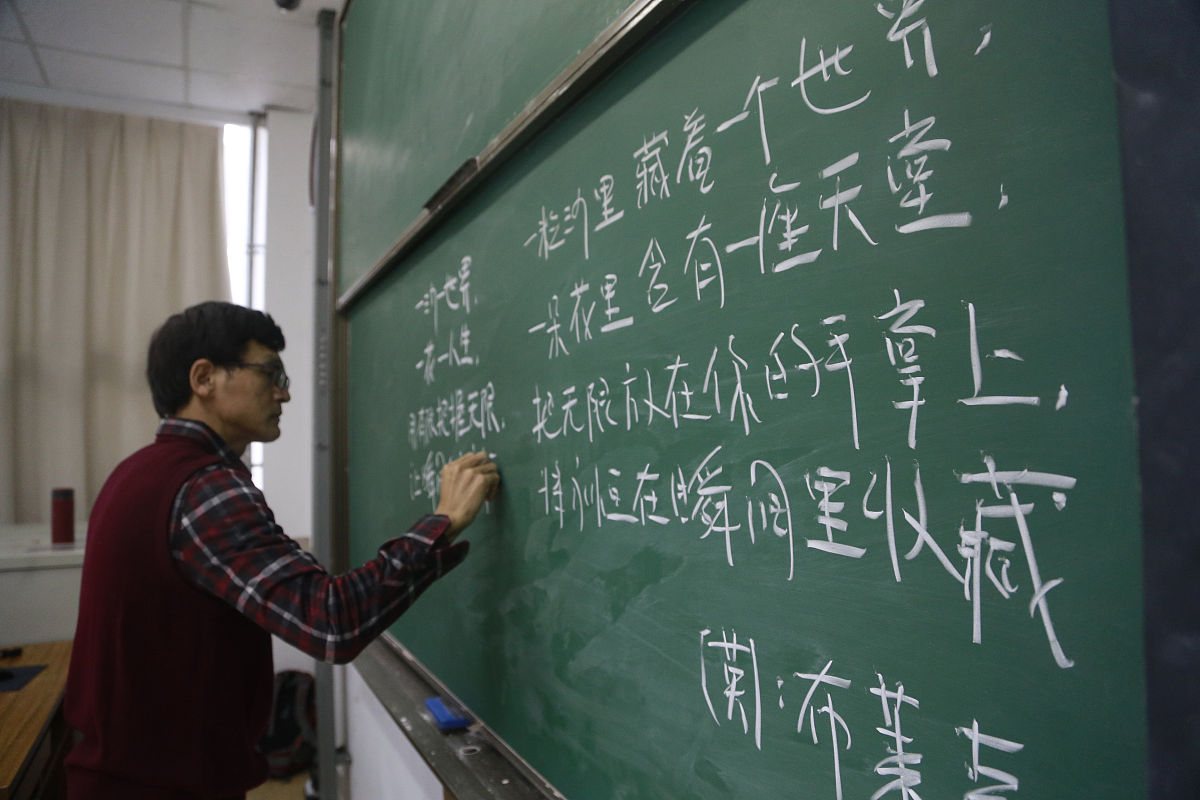 一沙一世界,
一花一人生,
有限把握无限,
让瞬
一粒沙里藏着一个世界,
一朵花里含有一座天堂,
把无限放在你的手掌上,
将永恒在瞬间里收藏
[英]:布莱克